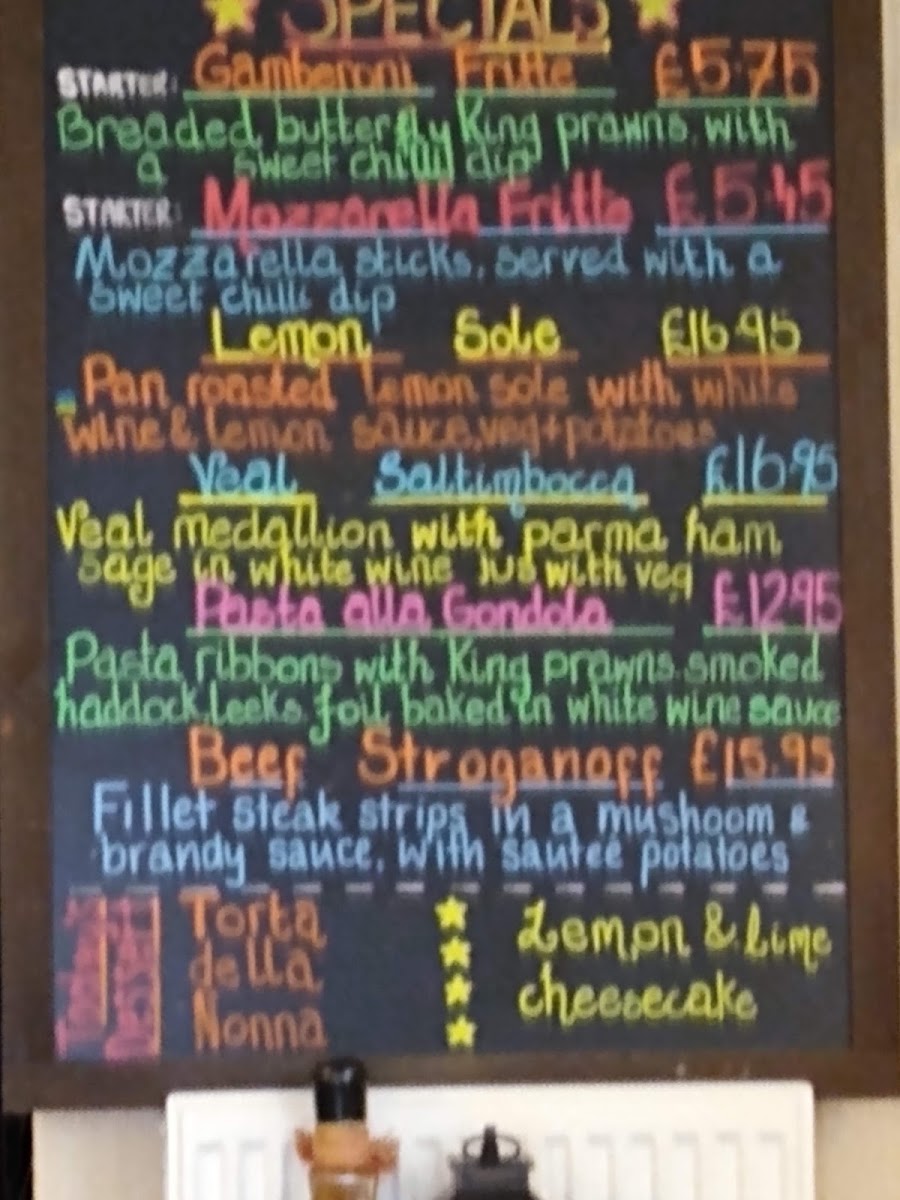 SPECIALS
STARTER: Gamberoni Fritte £5.75
Breaded butterfly King prawns with
a sweet chilli dip
STARTER: Mozzarella Fritte £5.45
Mozzarella sticks, served with a
sweet chilli dip
Lemon Sole £16.95
Pan roasted lemon sole with white
wine & lemon sauce, veg + potatoes
Veal Saltimbocca £16.95
Veal medallion with parma ham
sage in white wine jus with veg
Pasta alla Gondola £12.95
Pasta ribbons with King prawns, smoked
haddock, leeks foil baked in white wine sauce
Beef Stroganoff £15.95
Fillet steak strips in a mushoom &
brandy sauce, with sautee potatoes
Torta
della
Nonna
Lemon & Lime
cheesecake